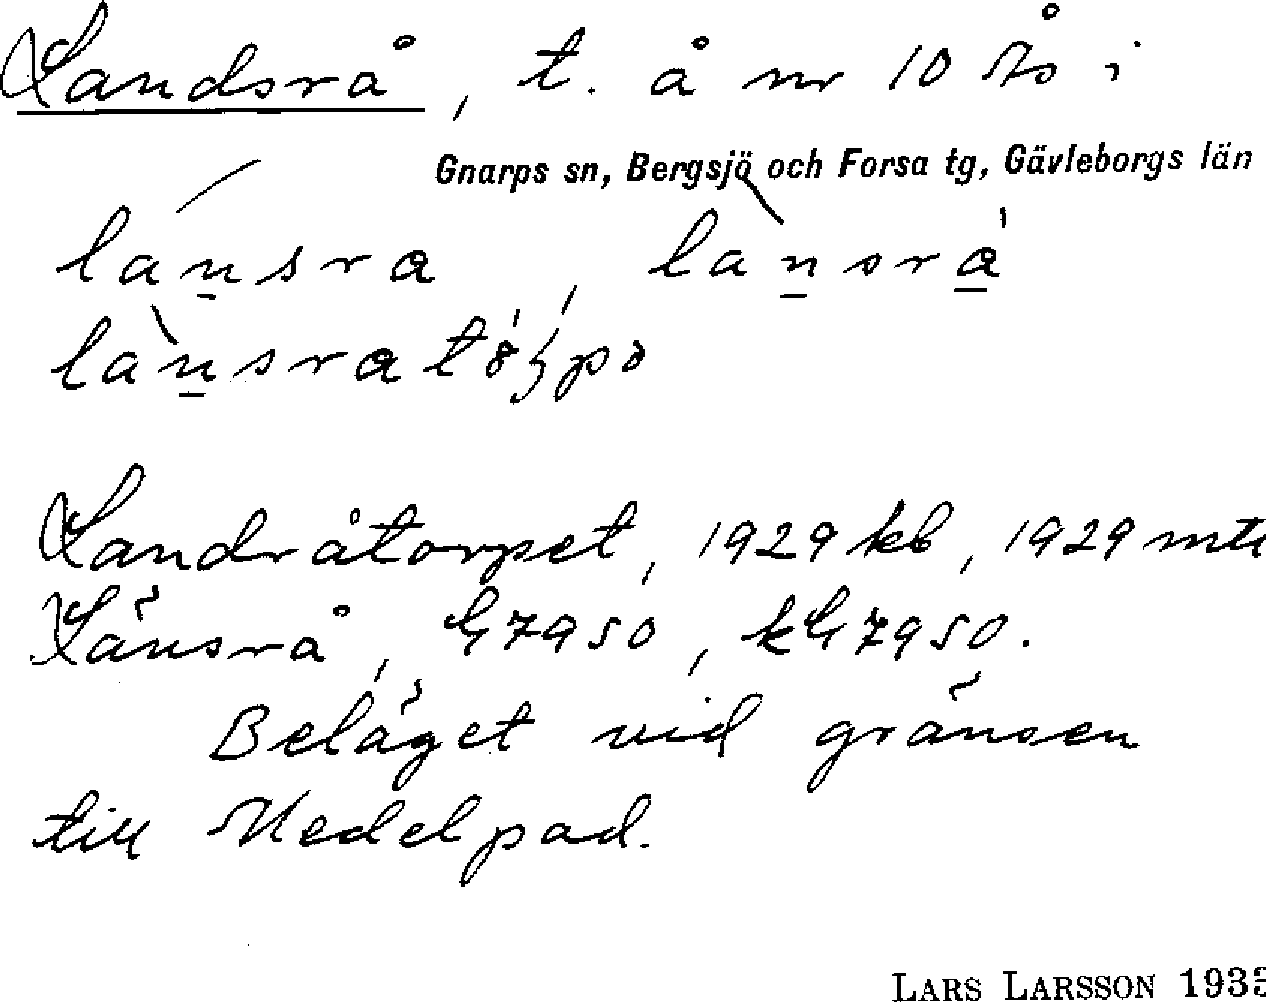 Landsrå, t. å nr 10 Ås i
Gnarps sn, Bergsjö och Forsa tg, Gävleborgs län
lánsra, lànsrá
lànsra
Landråtorpet, 1929 kb, 1929 mtl
Länsrå, G7950, kG7950.
Beläget vid gränsen
till Medelpad.
LARS LARSSON 193